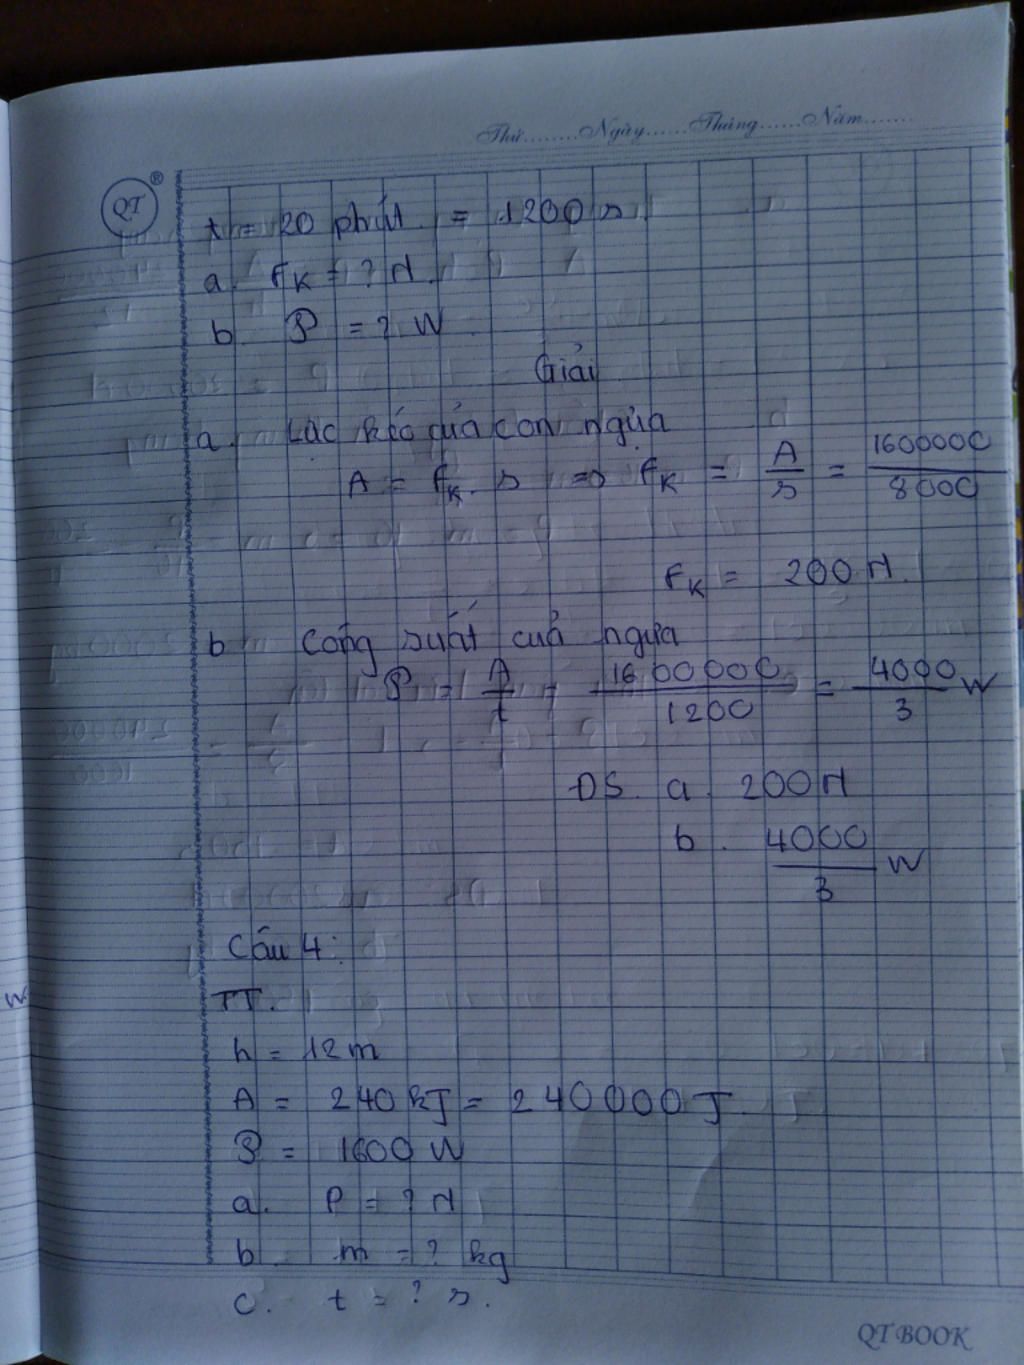 Thứ........Ngày......Tháng......Năm.......
QT ®
t = 20 phút = 1200 s
a. FK = ? N.
b. P = ? W
Giải
a. Lực kéo của con ngựa
A = FK. s => FK = A/s = 1600000/8000
FK = 200 N.
b Công suất của ngựa
P = A/t = 1600000/1200 = 4000/3 W
ĐS. a. 200 N
b. 4000/3 W
Câu 4:
TT.
h = 12 m
A = 240 kJ = 240000 J
P = 1600 W
a. P = ? N
b. m = ? kg
c. t = ? s.
W
QT BOOK